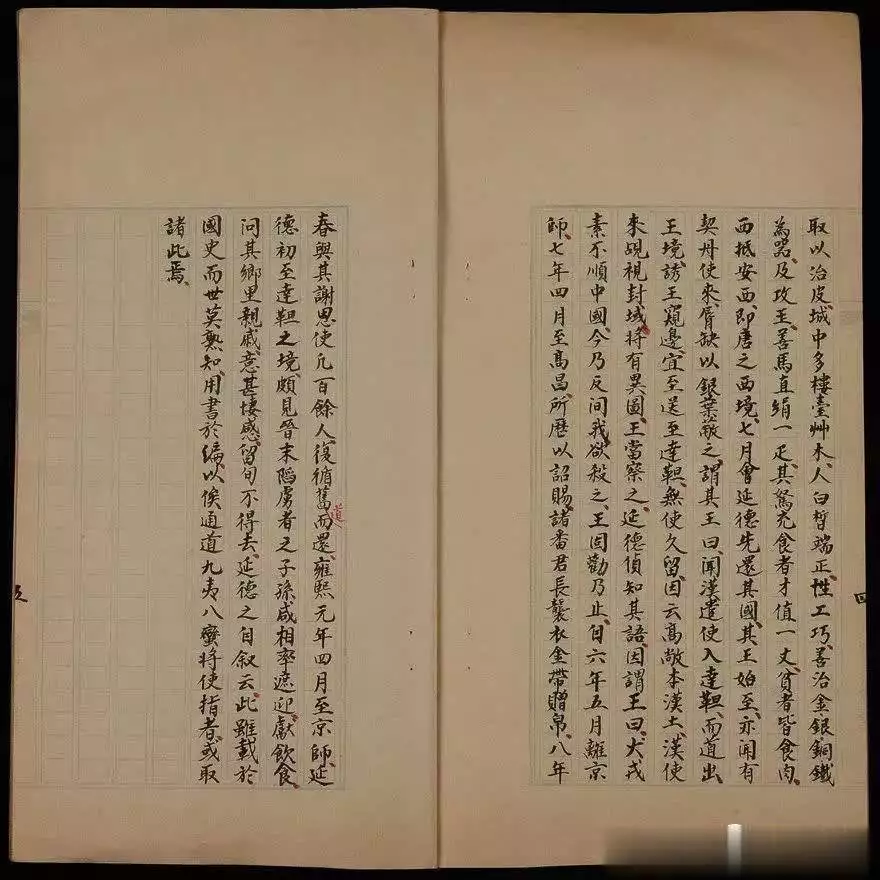 取以治皮城中多樓臺艸木人白皙端正性工巧善治金銀銅鐵
為器及攻王善馬直絹一疋其駑充食者才值一丈貧者皆食肉
西抵安西即唐之西境七月會延德先還其國其王始至亦聞有
契丹使來脣缺以銀葉蔽之謂其王曰聞漢遣使入達靼而道出
王境誘王窺邊宜至送至達靼無使久留因云高敞本漢土漢使
來覘視封域將有異圖王當察之延德偵知其語因謂王曰犬戎
素不順中國今乃反间我欲殺之王固勸乃止自六年五月離京
師七年四月至高昌所歷以詔賜諸番君長襲衣金帶贈帛八年
春與其謝恩使凡百餘人復循舊而還雍熙元年四月至京師延
道
德初至達靼之境頗見晉末陷虜者之子孫咸相率遮迎獻飲食
問其鄉里親戚意甚悽感留旬不得去延德之自叙云此雖載於
國史而世莫熟知用書於編以俟通道九夷八蠻將使指者或取
諸此焉
四
五